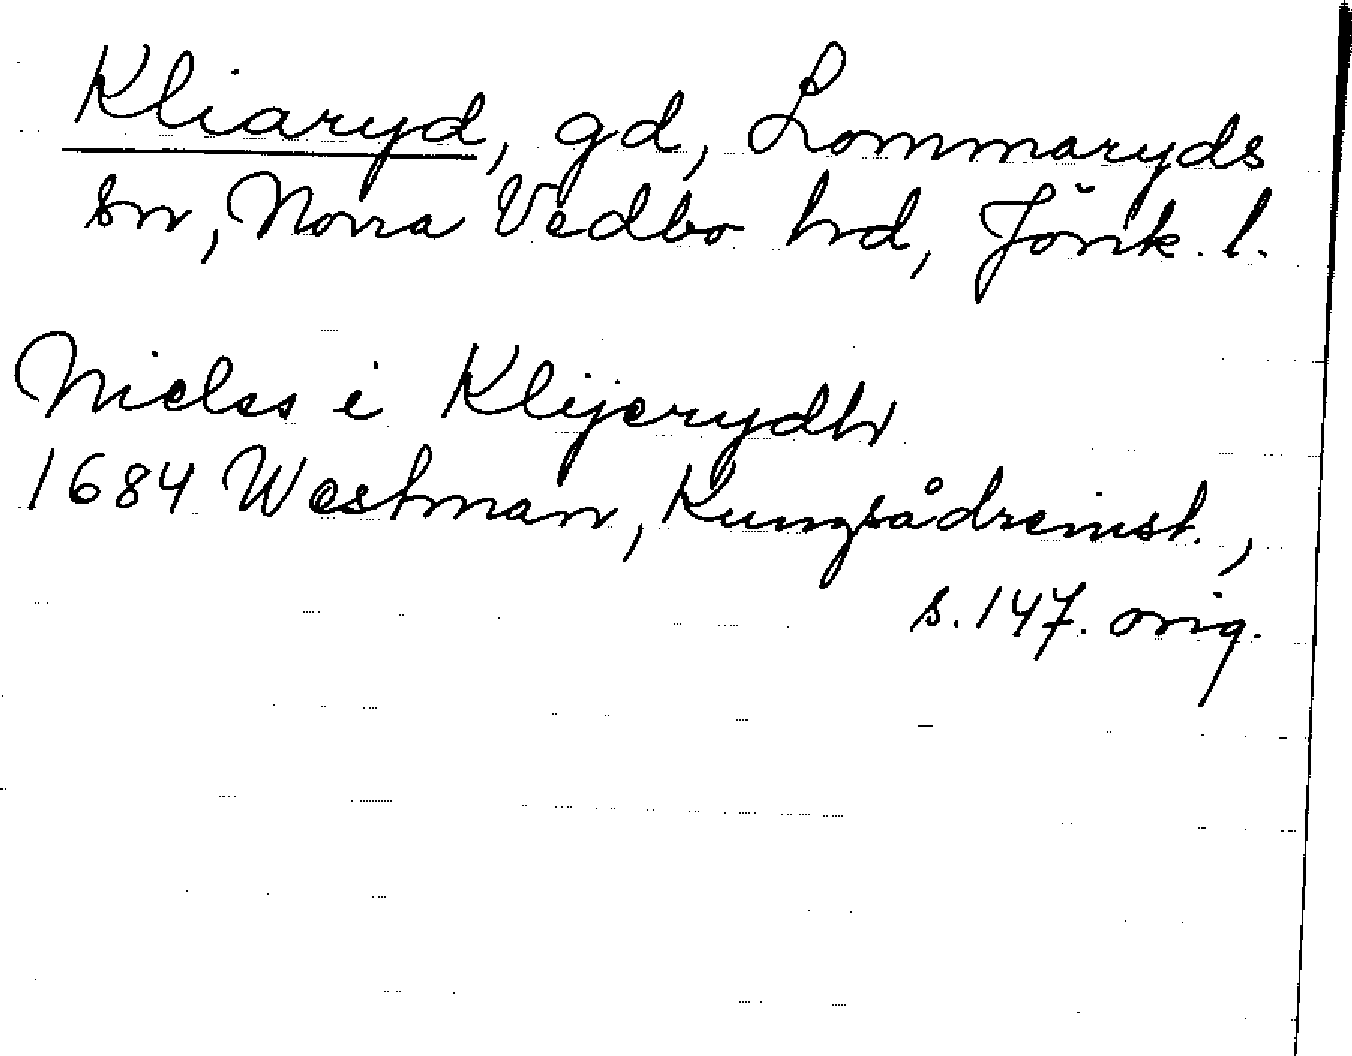 Kliaryd, gd, Lommaryds
sn, Norra Vedbo hd, Jönk. l.
Nielss i Klijerydh
1684 Westman, Kungsådreinst.,
s. 147. orig.